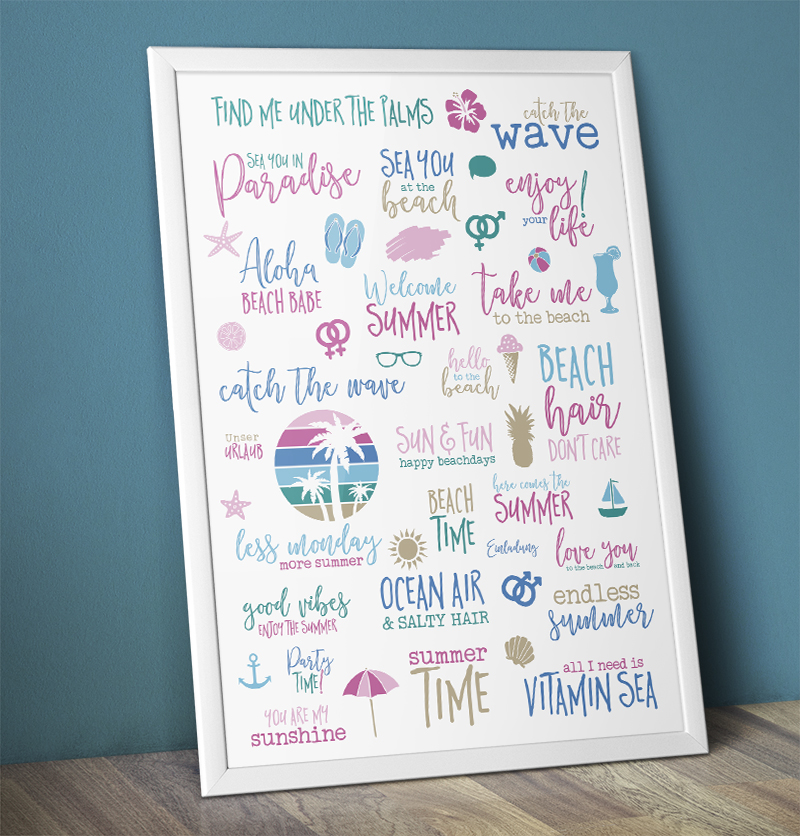 FIND ME UNDER THE PALMS
catch the
wave
SEA YOU IN
Paradise
SEA YOU
at the
beach
enjoy
your life!
Aloha
BEACH BABE
Welcome
SUMMER
take me
to the beach
catch the wave
hello
to the
beach
BEACH
hair
DON'T CARE
Unser
URLAUB
SUN & FUN
happy beachdays
BEACH
TIME
here comes the
SUMMER
less monday
more summer
Einladung
love you
to the beach and back
good vibes
ENJOY THE SUMMER
OCEAN AIR
& SALTY HAIR
endless
summer
Party
TIME!
summer
TIME
all I need is
VITAMIN SEA
YOU ARE MY
sunshine